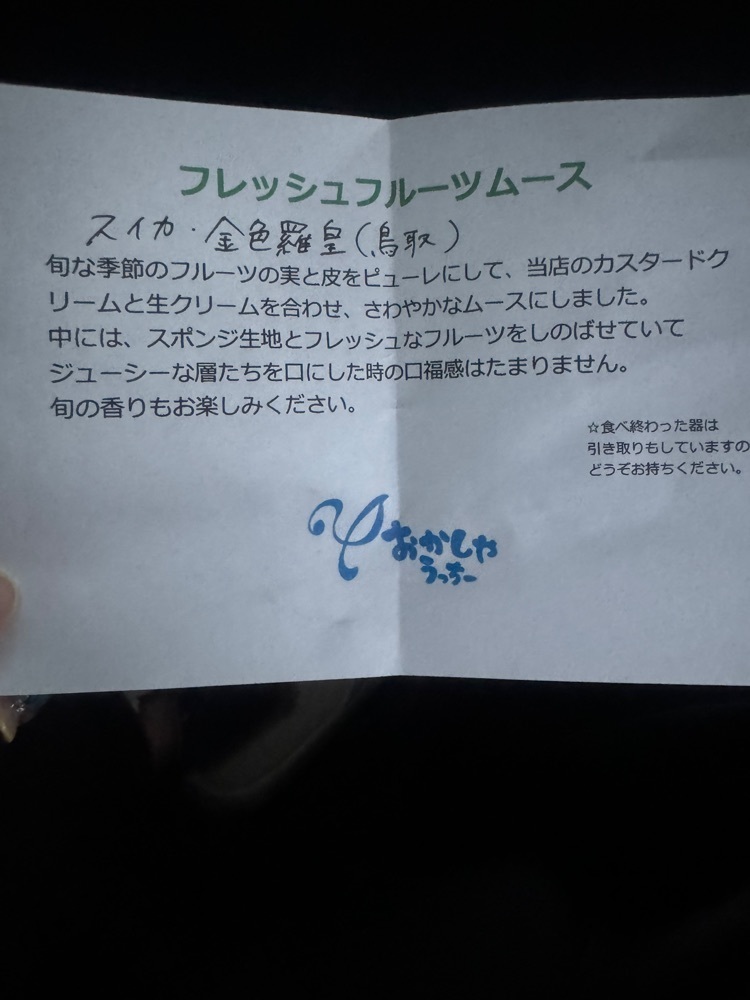 フレッシュフルーツムース
スイカ・金色羅皇(鳥取)
旬な季節のフルーツの実と皮をピューレにして、当店のカスタードク
リームと生クリームを合わせ、さわやかなムースにしました。
中には、スポンジ生地とフレッシュなフルーツをしのばせていて
ジューシーな層たちを口にした時の口福感はたまりません。
旬の香りもお楽しみください。
☆食べ終わった器は
引き取りもしていますの
どうぞお持ちください。
おかしや
うっちー